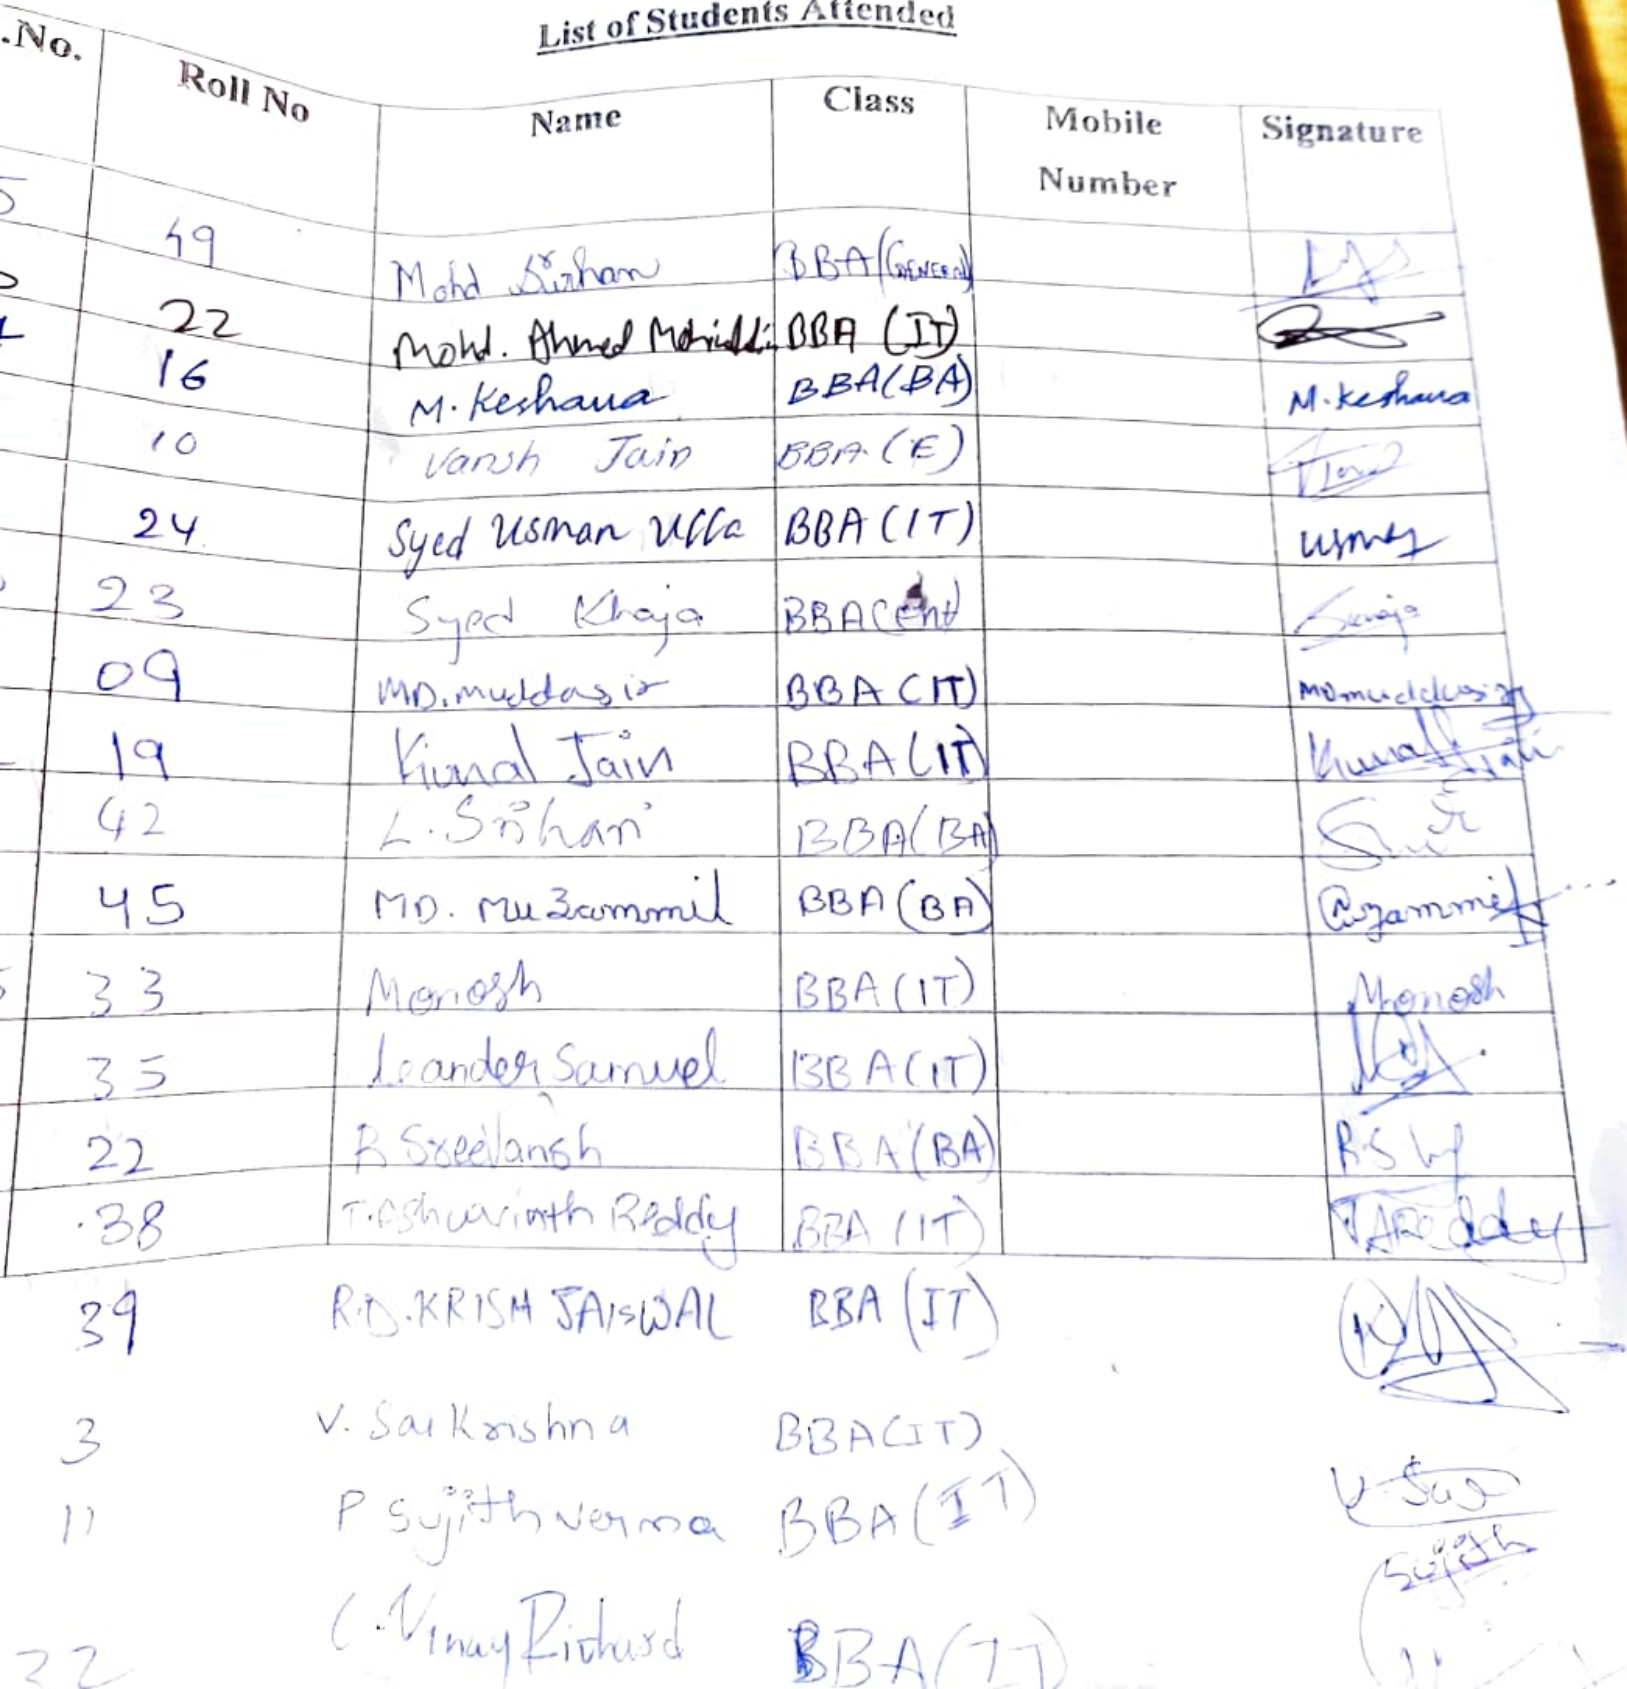 List of Students Attended
.No. Roll No Name Class Mobile Number Signature
49 Mohd BBA (GENERAL)
22 Mohd. Ahmed BBA (IT)
16 M. Keshava BBA (BA) M. Keshava
10 Vansh Jain BBA (E)
24 Syed Usman Ulla BBA (IT)
23 Syed Khaja BBA (ent)
09 MD. muddasir BBA (IT) MD muddasir
19 Kunal Jain BBA (IT) Kunal Jain
42 L. Srihari BBA (BA)
45 MD. Muzammil BBA (BA)
33 Monosh BBA (IT) Monosh
35 Leander Samuel BBA (IT)
22 R Sreevansh BBA (BA)
38 T. Ashwarinth Reddy BBA (IT) T A Reddy
39 R.D. KRISH JAISWAL BBA (IT)
3 V. Sai Krishna BBA (IT) V Sai
11 P Sujith verma BBA (IT) Sujith
22 C. Vinay Richard BBA (IT)